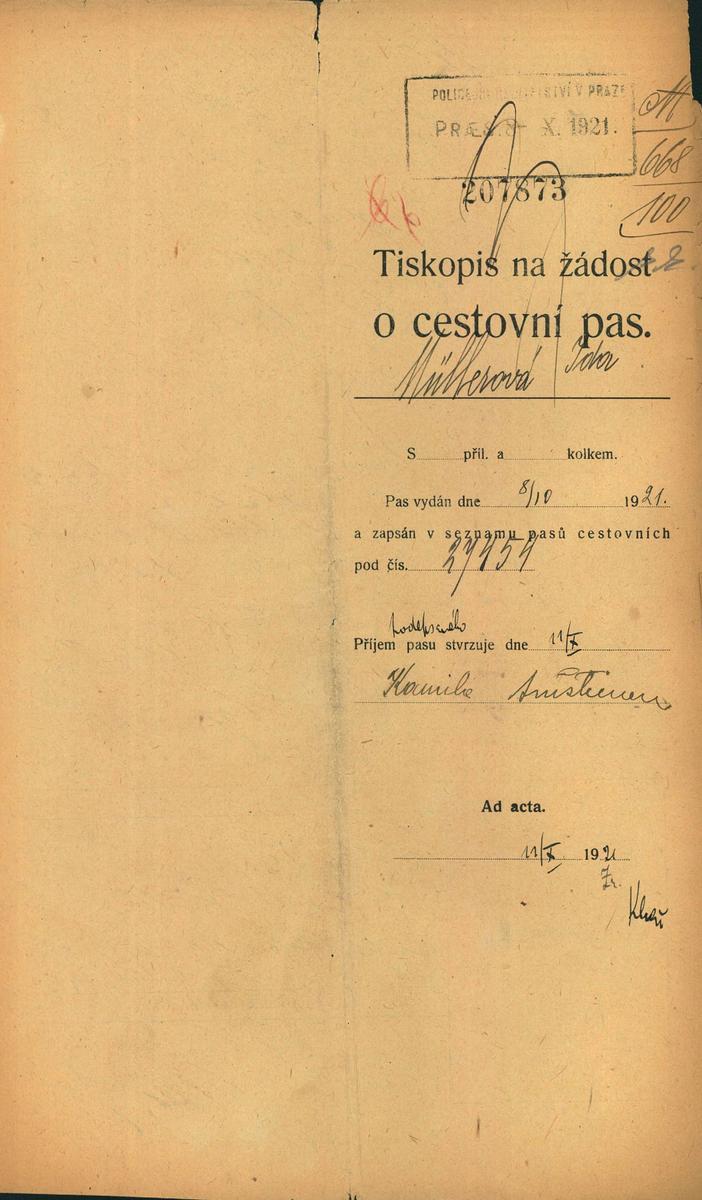 POLICEJNÍ ŘEDITELSTVÍ V PRAZE
PRÆS. 8- X. 1921.
M
668
100
207873
Tiskopis na žádost
o cestovní pas.
Müllerová Ida
S příl. a kolkem.
Pas vydán dne 8/10 1921.
a zapsán v seznamu pasů cestovních
pod čís. 27454
Příjem pasu stvrzuje dne 11/X
Kamila
Ad acta.
11/X 1921